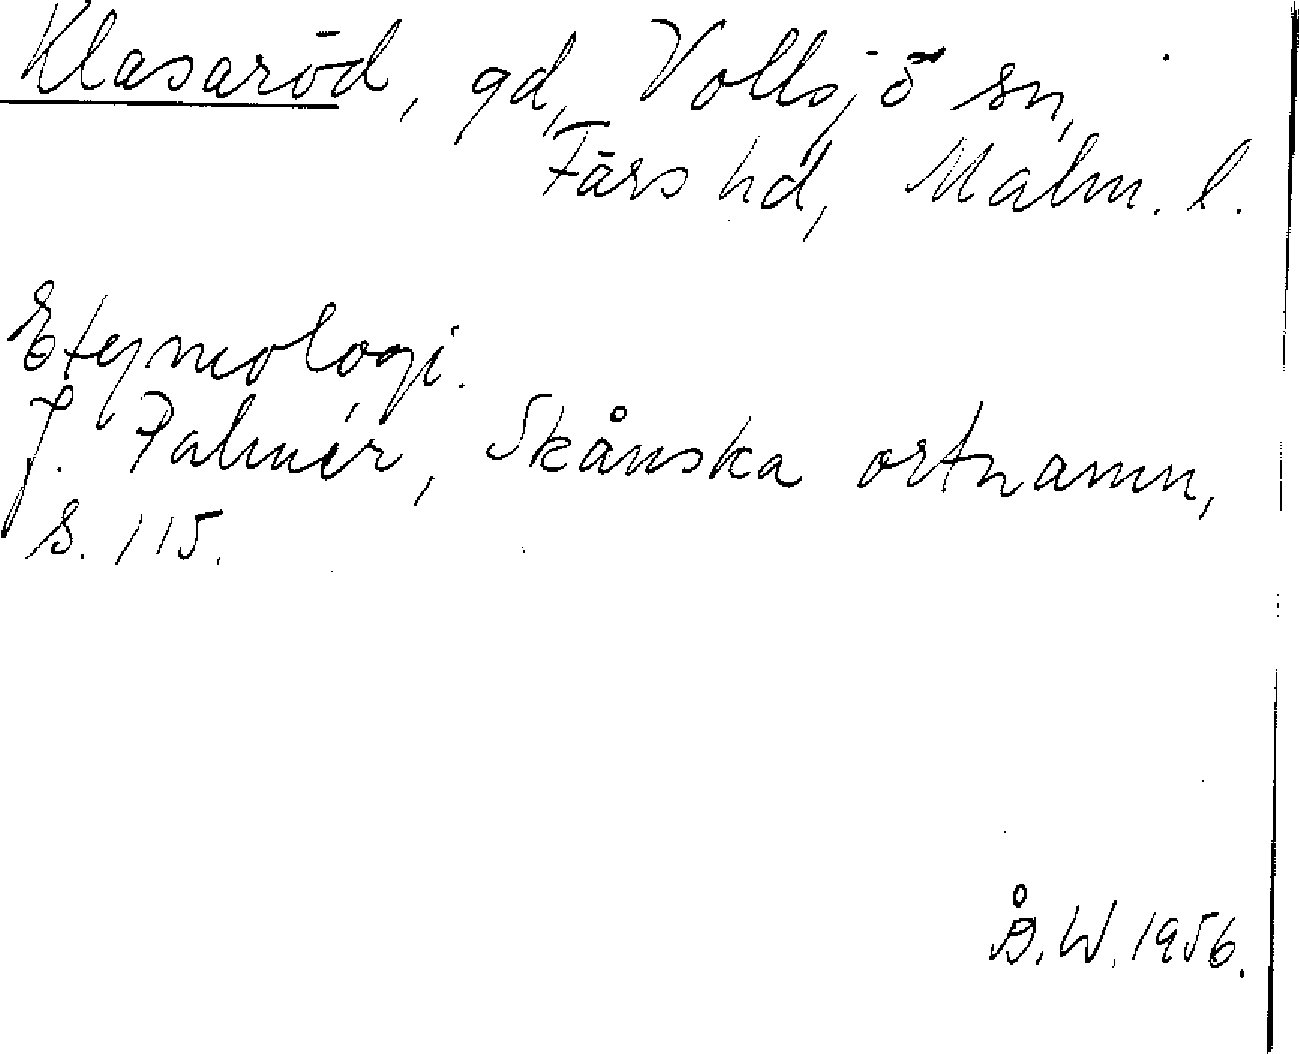 Klasaröd, gd, Vollsjö sn,
Färs hd, Malm. l.
Etymologi.
J. Palmér, Skånska ortnamn,
s. 115.
Å. W. 1956.